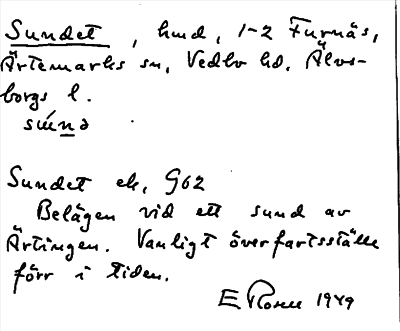 Sundet, hmd, 1-2 Furnäs,
Ärtemarks sn, Vedbo hd, Älvs-
borgs l.
súnə
Sundet ek, G62
Belägen vid ett sund av
Ärtingen. Vanligt överfartsställe
förr i tiden.
E Rosell 1949